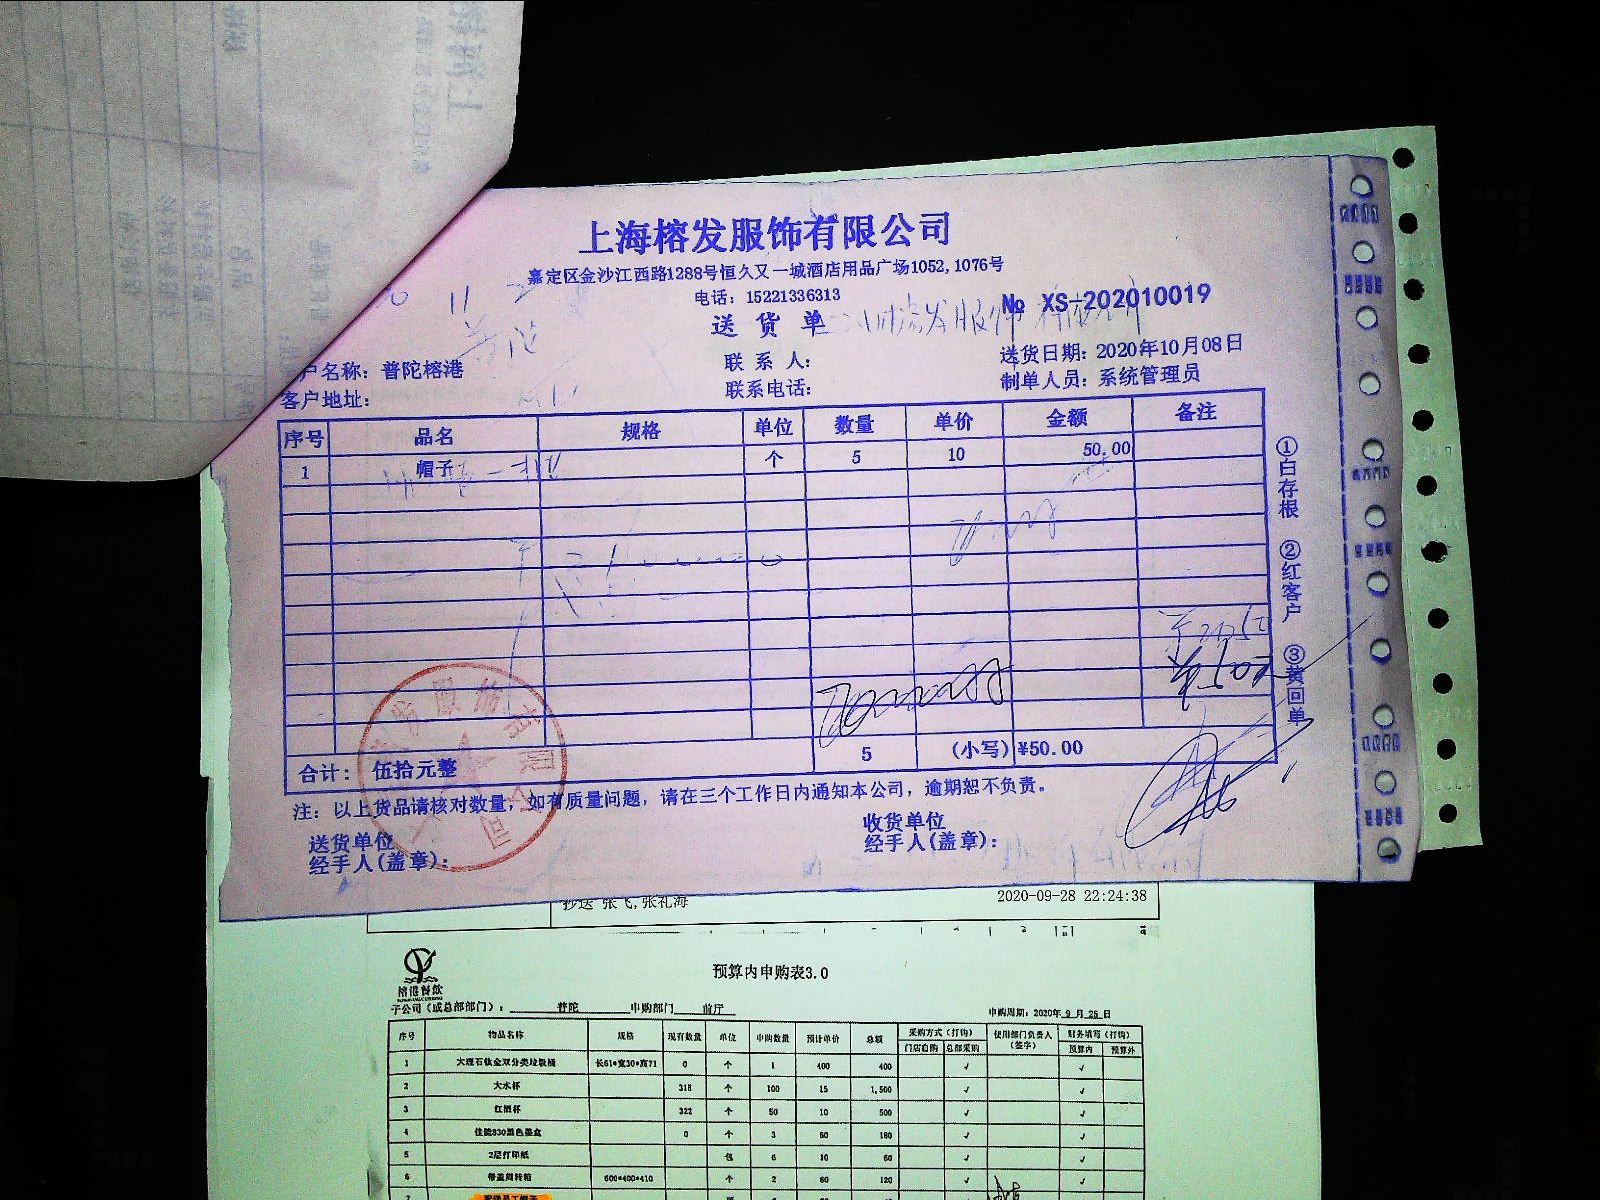 上海榕发服饰有限公司
嘉定区金沙江西路1288号恒久又一城酒店用品广场1052,1076号
电话：15221336313
№ XS-202010019
送 货 单
联 系 人： 送货日期：2020年10月08日
户名称：普陀榕港 联系电话： 制单人员：系统管理员
客户地址：
序号 品名 规格 单位 数量 单价 金额 备注
1 帽子 个 5 10 50.00
合计： 伍拾元整 5 (小写) ¥50.00
①白存根 ②红客户 ③黄回单
注：以上货品请核对数量，如有质量问题，请在三个工作日内通知本公司，逾期恕不负责。
送货单位 收货单位
经手人(盖章)： 经手人(盖章)：
抄送 张飞,张礼海 2020-09-28 22:24:38
榕港餐饮
预算内申购表3.0
子公司（或总部部门）： 普陀 申购部门 前厅 申购周期：2020年 9 月 25 日
序号 物品名称 规格 现有数量 单位 申购数量 预计单价 总额 采购方式（打钩） 使用部门负责人（签字） 财务填写（打钩）
门店自购 总部采购 预算内 预算外
1 大理石钛金双分类垃圾桶 长61*宽30*高71 0 个 1 400 400 √ √
2 大水杯 318 个 100 15 1,500 √ √
3 红酒杯 322 个 50 10 500 √ √
4 佳能830黑色墨盒 0 个 3 60 180 √ √
5 2层打印纸 包 6 10 60 √ √
6 带盖周转箱 600*400*410 个 2 60 120 √ √
7